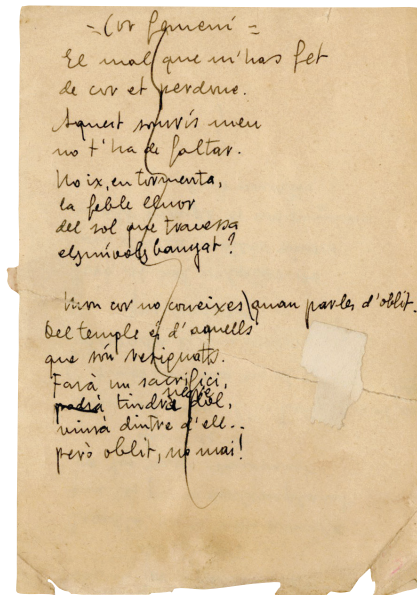 = Cor femení =
El mal que m'has fet
de cor et perdone.
Aquest somrís meu
no t'ha de faltar.
No ix, en tormenta,
la feble lluor
del sol que travessa
els núvols banyat?
Mon cor no coneixes quan parles d'oblit.
Del temple és d'aquells
que són resignats.
Farà un sacrifici,
podrà tindrà negre dol,
vinrà dintre d'ell..
però oblit, no mai!